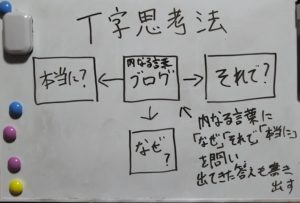 T字思考法
本当に?
内なる言葉
ブログ
それで?
なぜ
?
内なる言葉に
「なぜ」「それで」「本当に」
を問い
出てきた答えを書き
出す